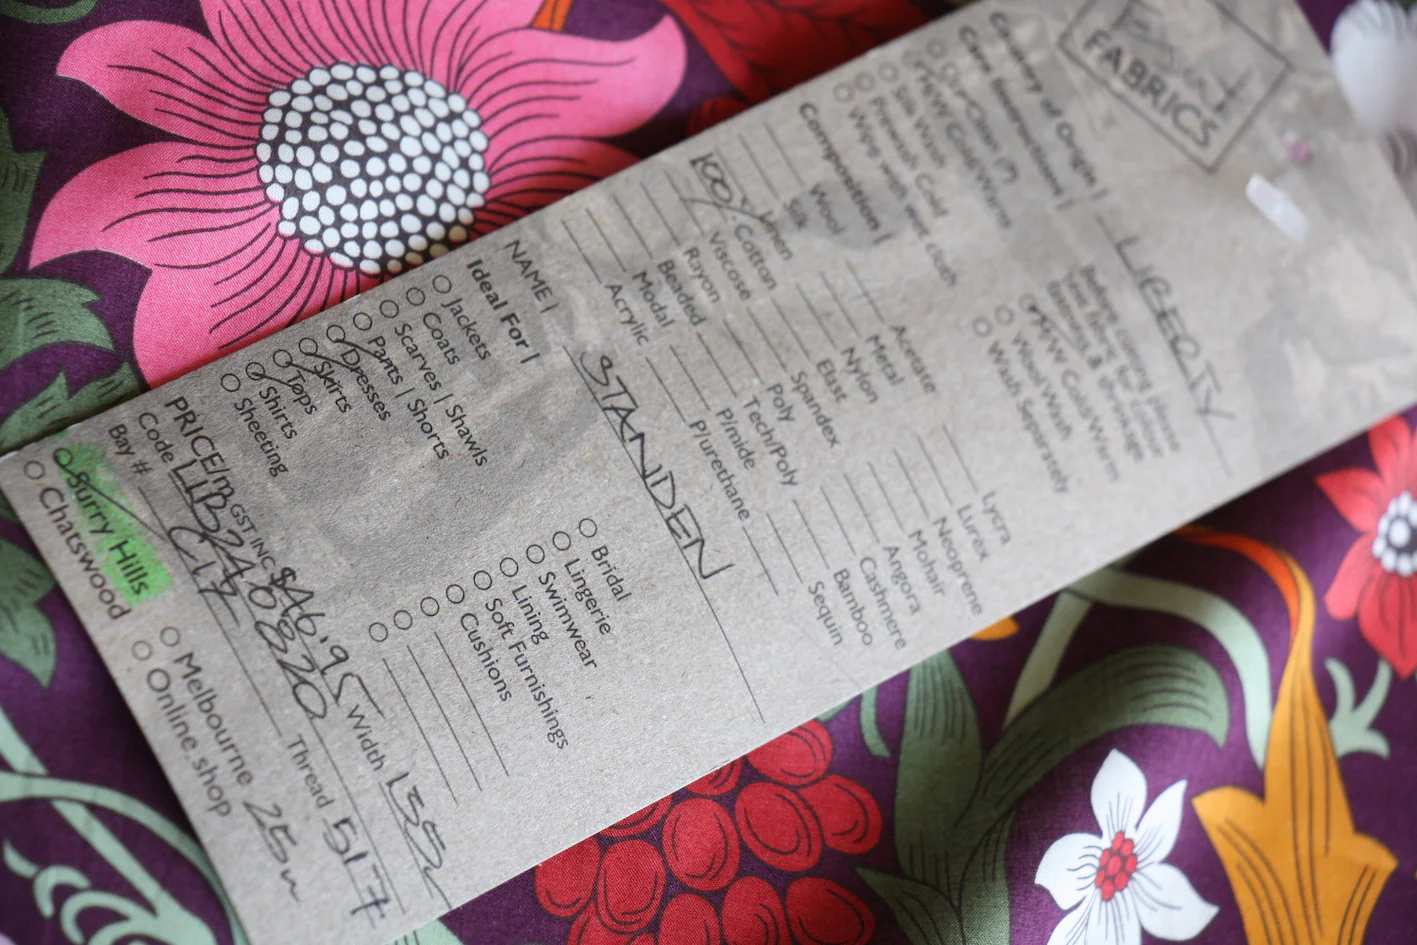 FABRICS
Country of Origin | LIBERTY
Care Instructions |
Before cutting please
test fabric for colour
fastness & shrinkage
Dry Clean
HW Cold/Warm
HW Cold/Warm
Silk Wash
Wool Wash
Prewash Cold
Wash Separately
Wipe with wet cloth
Composition |
Wool
Acetate
Lycra
Silk
Metal
Lurex
Linen
Nylon
Neoprene
100% Cotton
Elast
Mohair
Viscose
Spandex
Angora
Rayon
Poly
Cashmere
Beaded
Tech/Poly
Bamboo
Modal
P/mide
Sequin
Acrylic
P/urethane
NAME | STANDEN
Ideal For |
Jackets
Bridal
Coats
Lingerie
Scarves | Shawls
Swimwear
Pants | Shorts
Lining
Dresses
Soft Furnishings
Skirts
Cushions
Tops
Shirts
Sheeting
PRICE/m GST INC $46.95 Width 135
Code LIB246820 Thread 5177
Bay # C17
Surry Hills
Melbourne 25m
Chatswood
Online.shop